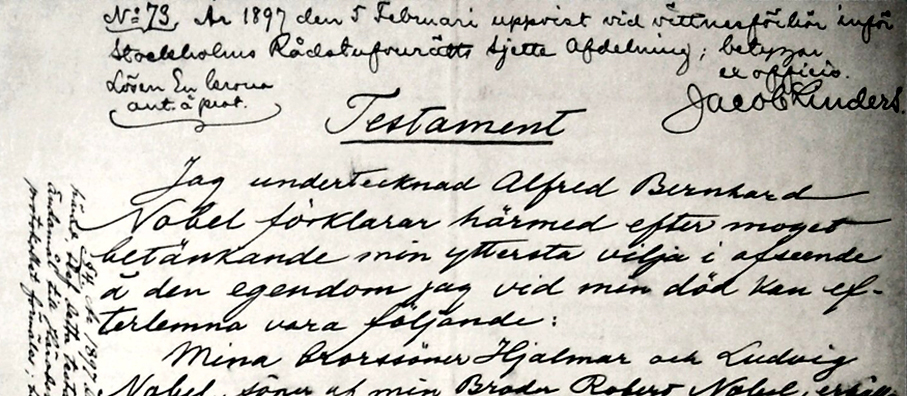 No 73. År 1897 den 5 Februari uppvist vid vittnesförhör inför
Stockholms Rådstufvurätts sjette Afdelning; betygar
ex officio.
Lösen En krona
ant. à prot.
Jacob Linders.
Testament
Jag undertecknad Alfred Bernhard
Nobel förklarar härmed efter moget
betänkande min yttersta vilja i afseende
å den egendom jag vid min död kan ef-
terlemna vara följande:
Mina Brorssöner Hjalmar och Ludvig
Nobel, söner af min Broder Robert Nobel,